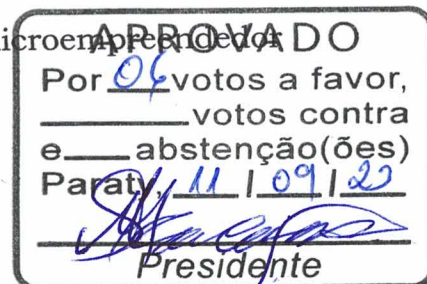 microempreendedor
APROVADO
Por 06 votos a favor,
votos contra
e abstenção(ões)
Paraty, 11 / 09 / 23
Presidente